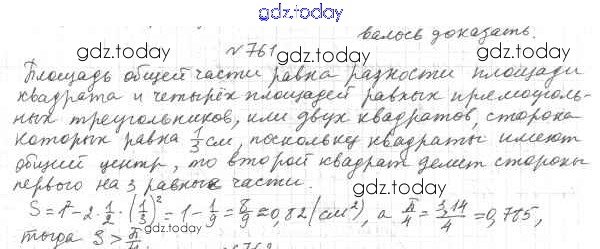 gdz.today
валось доказать.
gdz.today
№761
gdz.today
Площадь общей части равна разности площади
квадрата и четырёх площадей равных прямоуголь-
ных треугольников, или двух квадратов, сторона
которых равна 1/3 см, поскольку квадраты имеют
gdz.today
общий центр, то второй квадрат делит стороны
gdz.today
первого на 3 равные части.
S = 1² - 2 · 1/2 · (1/3)² = 1 - 1/9 = 8/9 ≈ 0,82 (см²), а π/4 = 3,14/4 = 0,785,
gdz.today
тогда S > π/4
№762